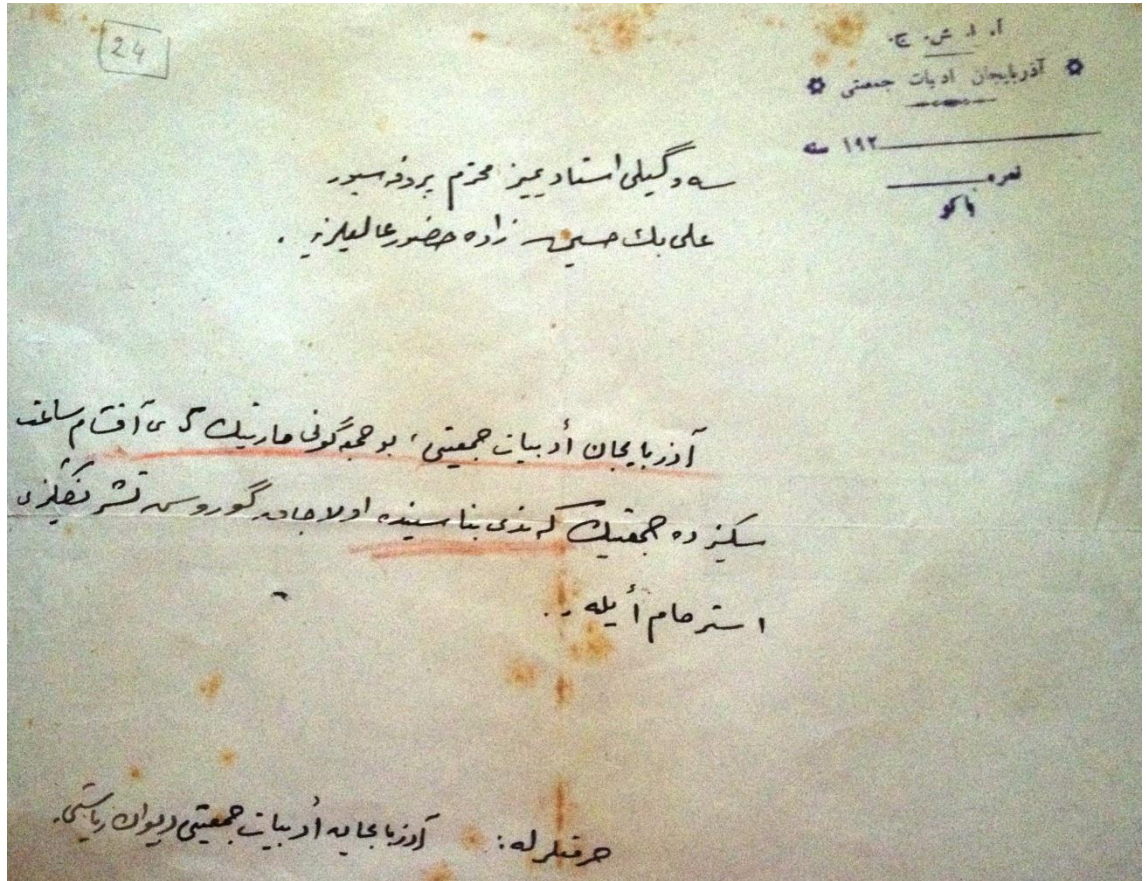 24
آ. ا. ش. ج.
آذربایجان ادبیات جمعیتی
۱۹۲ سنه
نمره
باکو
سه وگیلی استادیمیز محترم پروفه سور
علی بك حسین زاده حضور عالیلرینه .
آذربایجان أدبیات جمعیتی، بو جمعه گونی مارتیك ی آقشام ساعت
سکیز ده جمعیتیك که ندی بناسینده اولاجاق گوروسه تشریفکیزی
استرحام أیله ر .
حرمتلر له : آذربایجان أدبیات جمعیتی دیوان ریاستی .